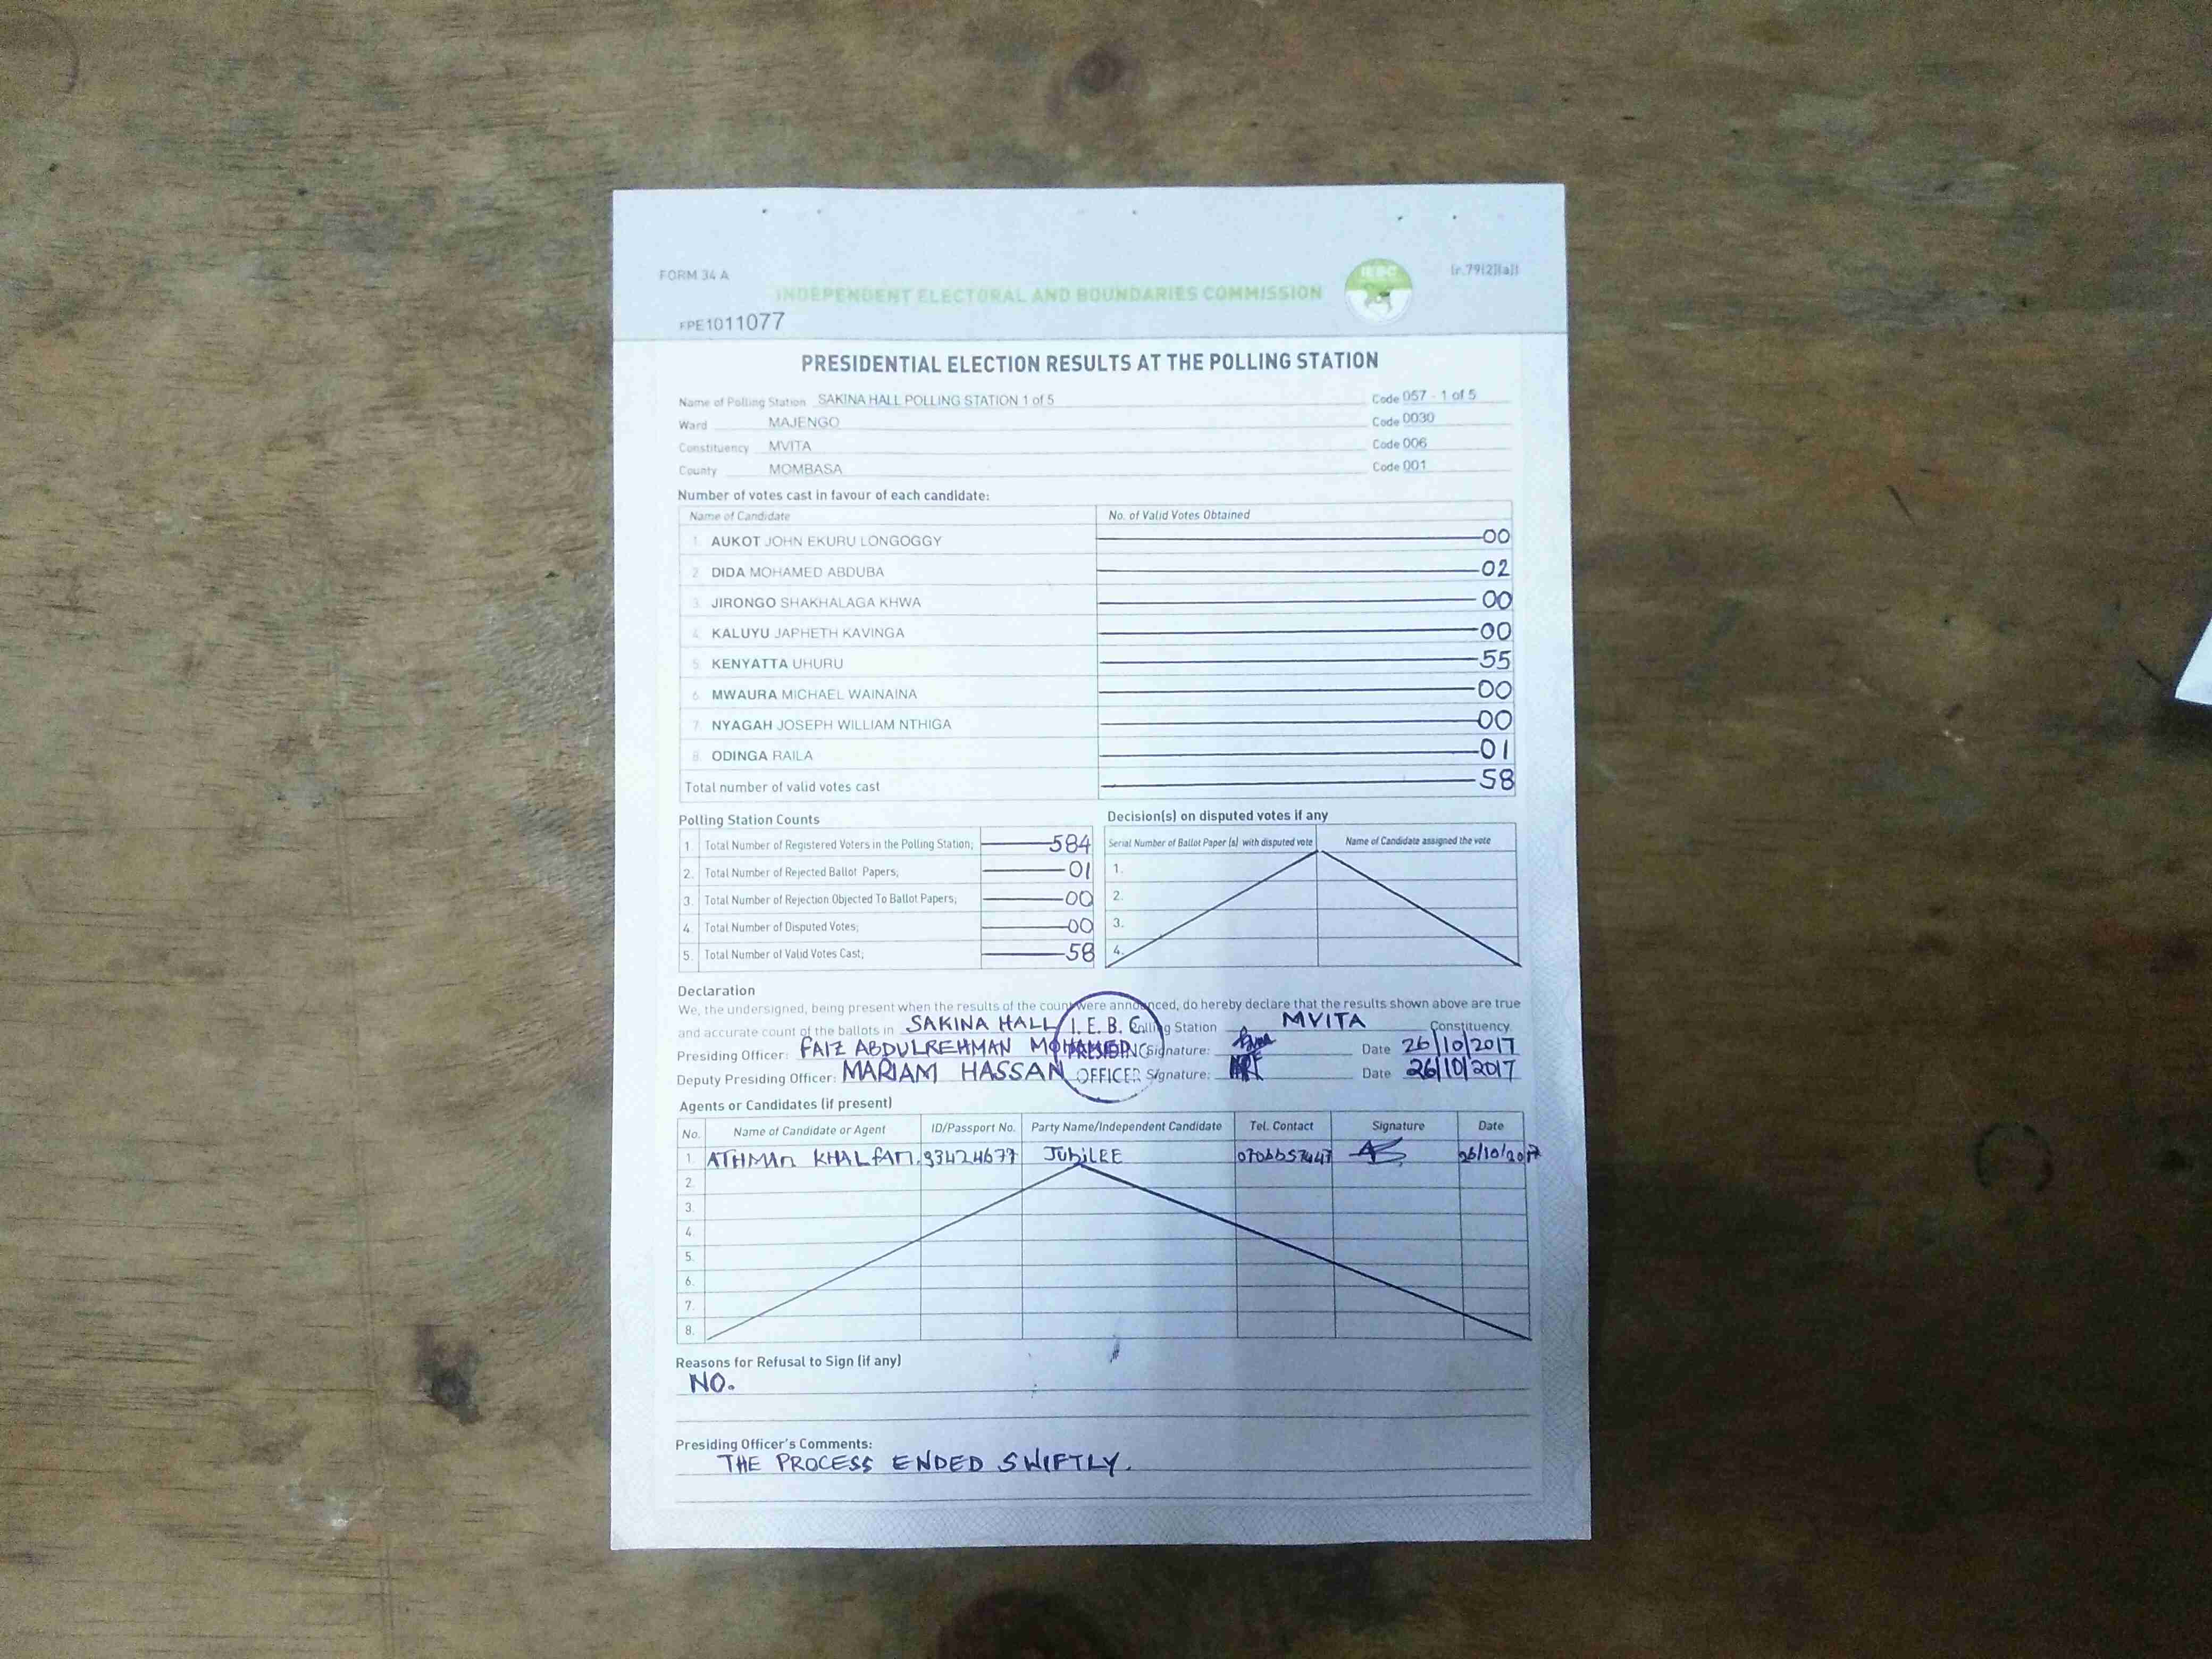 FORM 34 A
[r.79(2)(a)]
INDEPENDENT ELECTORAL AND BOUNDARIES COMMISSION
IEBC
FPE1011077
PRESIDENTIAL ELECTION RESULTS AT THE POLLING STATION
Name of Polling Station SAKINA HALL POLLING STATION 1 of 5 Code 057 - 1 of 5
Ward MAJENGO Code 0030
Constituency MVITA Code 006
County MOMBASA Code 001
Number of votes cast in favour of each candidate:
Name of Candidate No. of Valid Votes Obtained
1. AUKOT JOHN EKURU LONGOGGY 00
2. DIDA MOHAMED ABDUBA 02
3. JIRONGO SHAKHALAGA KHWA 00
4. KALUYU JAPHETH KAVINGA 00
5. KENYATTA UHURU 55
6. MWAURA MICHAEL WAINAINA 00
7. NYAGAH JOSEPH WILLIAM NTHIGA 00
8. ODINGA RAILA 01
Total number of valid votes cast 58
Polling Station Counts
1. Total Number of Registered Voters in the Polling Station; 584
2. Total Number of Rejected Ballot Papers; 01
3. Total Number of Rejection Objected To Ballot Papers; 00
4. Total Number of Disputed Votes; 00
5. Total Number of Valid Votes Cast; 58
Decision(s) on disputed votes if any
Serial Number of Ballot Paper (s) with disputed vote Name of Candidate assigned the vote
1.
2.
3.
4.
Declaration
We, the undersigned, being present when the results of the count were announced, do hereby declare that the results shown above are true
and accurate count of the ballots in SAKINA HALL Polling Station MVITA Constituency.
Presiding Officer: FAIZ ABDULREHMAN MOHAMED Signature: Date 26/10/2017
Deputy Presiding Officer: MARIAM HASSAN Signature: Date 26/10/2017
I. E. B. C
PRESIDING
OFFICER
Agents or Candidates (if present)
No. Name of Candidate or Agent ID/Passport No. Party Name/Independent Candidate Tel. Contact Signature Date
1. ATHMAN KHALFAN. 33424677 JUBILEE 26/10/2017
2.
3.
4.
5.
6.
7.
8.
Reasons for Refusal to Sign (if any)
NO.
Presiding Officer's Comments:
THE PROCESS ENDED SWIFTLY.